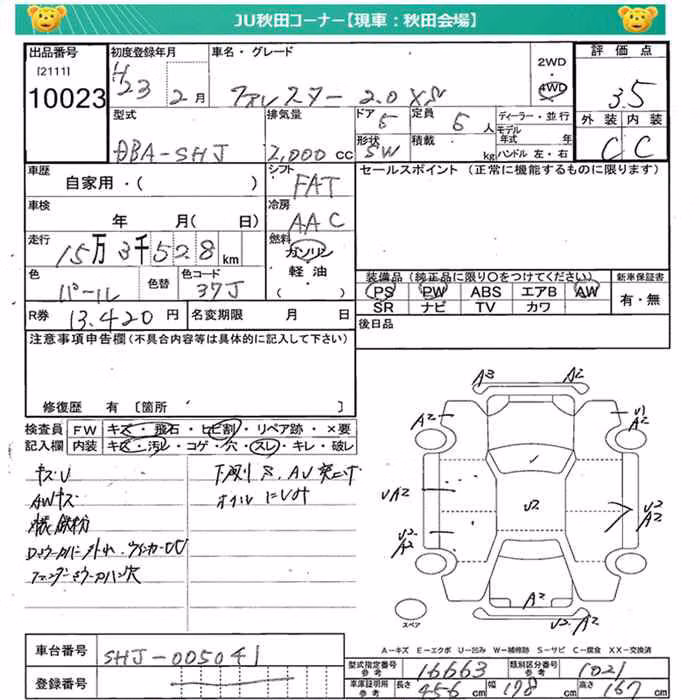 JU秋田コーナー【現車：秋田会場】
出品番号 初度登録年月 車名・グレード 2WD 評価点
[2111] H23 2月 フォレスター 2.0 XS 4WD 3.5
10023
外装 内装
型式 排気量 ドア 5 定員 5人 ディーラー・並行
モデル年式 年
DBA-SHJ 2,000cc 形状 SW 積載 kg ハンドル 左・右 C C
車歴 シフト セールスポイント（正常に機能するものに限ります）
自家用・（ ） FAT
車検 冷房
年 月（ 日） AAC
走行 燃料
15万3千528km ガソリン
軽油
（ ）
色 パール 色替 色コード 37J
装備品（純正品に限り○をつけてください） 新車保証書
PS PW ABS エアB AW 有・無
SR ナビ TV カワ
R券 13,420円 名変期限 月 日 後日品
注意事項申告欄（不具合内容等は具体的に記入して下さい）
修復歴 有［箇所 ］
検査員 FW キズ・飛石・ヒビ割・リペア跡・×要
記入欄 内装 キズ・汚レ・コゲ・穴・スレ・キレ・破レ
キズU
AWキズ
A3 A2
A2 U1
A2
UA2 U2 U2
A2
U2
A2
A2
U2.A2
スペア
A-キズ E-エクボ U-凹み W-補修跡 S-サビ C-腐食 XX-交換済
車台番号 SHJ-005041
登録番号
型式指定番号 参考 16663 類別区分番号 参考 1021
車庫証明用 参考 長さ 456cm 幅 178cm 高さ 167cm